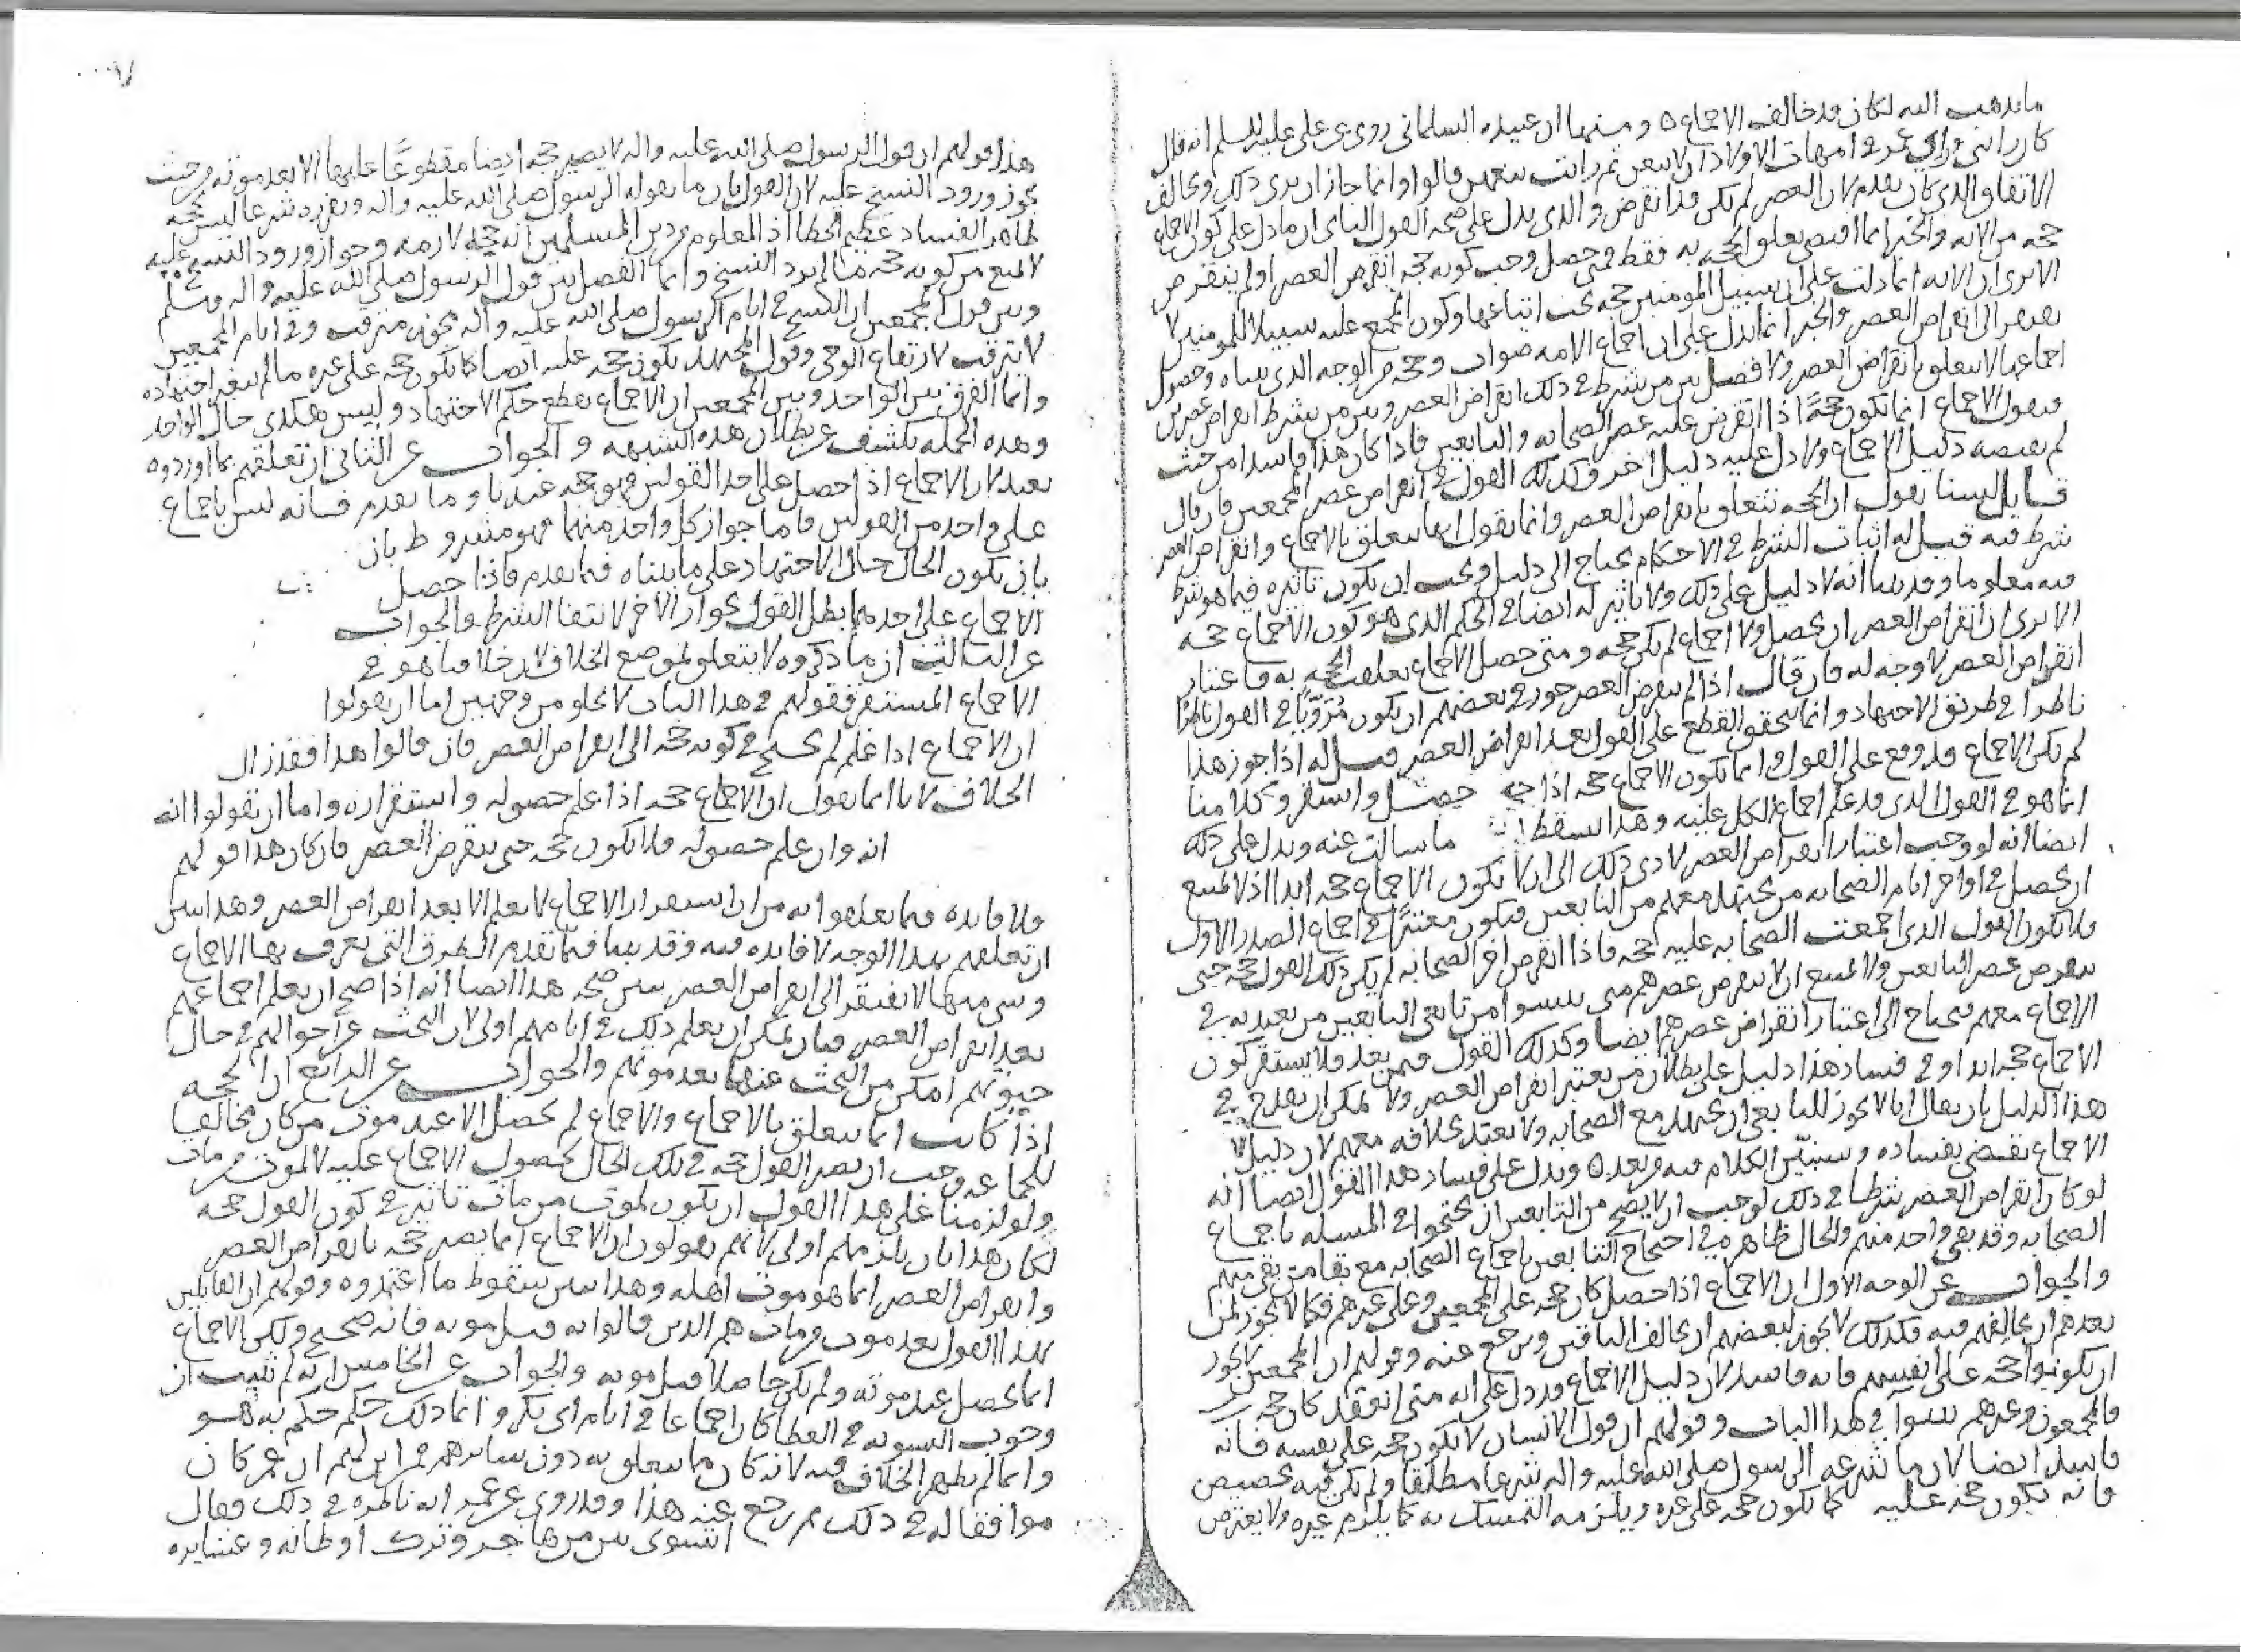 ما يذهب اليه لكان قد خالف الاجماع ٥ ومنها ان عبيده السلماني روى عن علي عليه السلم انه قال
كان رائي وراي عمر في امهات الاولاد ان لا يبعن ثم رايت بيعهن قالوا وانما جاز ان يرى ذلك ويخالف
الاتفاق الذي كان تقدم لان العصر لم يكن قد انقرض والذي يدل على صحه القول الثاني ان ما دل على كون الاجماع
حجه من الايه والخبر انما اقتضى تعلق الحجه به فقط فمتى حصل وجب كونه حجه انقرض العصر او لم ينقرض
الا ترى ان الايه انما دلت على ان سبيل المومنين حجه يجب اتباعها وكون المجمع عليه سبيلا للمومنين لا
يفتقر الى انقراض العصر والخبر انما يدل على ان اجماع الامه صواب وحجه من الوجه الذي بيناه وحصول
اجماعها لا يتعلق بانقراض العصر ولا فصل بين من شرط في ذلك انقراض العصر وبين من شرط انقراض عصرين
فيقول الاجماع انما يكون حجةً اذا انقرض عليه عصر الصحابه والتابعين فاذا كان هذا فاسدا من حيث
لم يقتضه دليل الاجماع ولا دل عليه دليل اخر فكذلك القول في انقراض عصر المجمعين فان قال
قايل لسنا نقول ان الحجه تتعلق بانقراض العصر وانما نقول انها تتعلق بالاجماع وانقراض العصر
شرط فيه قيل له اثبات الشرط في الاحكام يحتاج الى دليل ويجب ان يكون تاثيره فيما هو شرط
فيه معلوما وقد بينا انه لا دليل على ذلك ولا تاثير له ايضا في الحكم الذي هو كون الاجماع حجه
الا ترى ان انقراض العصر ان يحصل ولا اجماع لم يكن حجه ومتى حصل الاجماع تعلقت الحجه به فاعتبار
انقراض العصر لا وجه له فان قال اذا لم ينقرض العصر جوز في بعضهم ان يكون مُتروّيًا في القول ناظرًا
ناظرا في طريق الاجتهاد وانما يتحقق القطع على القول بعد انقراض العصر قيل له اذا جوز هذا
لم يكن الاجماع قد وقع على القول وانما يكون الاجماع حجه اذا حصل واستقر وكلامنا
انما هو في القول الذي قد علم اجماع الكل عليه وهذا يسقط ما سالت عنه ويدل على ذلك
ايضا انه لو وجب اعتبار انقراض العصر لادى ذلك الى ان لا يكون الاجماع حجه ابدا اذ لا يمتنع
ان يحصل في اواخر ايام الصحابه من يجتهد معهم من التابعين فيكون معتبرًا في اجماع الصدر الاول
فلا يكون القول الذي اجمعت الصحابه عليه حجه فاذا انقرض اخر الصحابه لم يكن ذلك القول حجه حتى
ينقرض عصر التابعين ولا يمتنع ان لا ينقرض عصرهم حتى من تابعي التابعين من يعتد به في
الاجماع معهم فيحتاج الى اعتبار انقراض عصرهم ايضا وكذلك القول فيمن بعد فلا يستقر كون
الاجماع حجه ابدا وفي فساد هذا دليل على بطلان من يعتبر انقراض العصر ولا يمكن ان يقدح في
هذا الدليل بان يقال انا لا نجوز للتابعي ان يجتهد مع الصحابه ولا يعتد بخلافه معهم لان دليل
الاجماع يقتضي بفساده وسنبيّن الكلام فيه من بعد ٥ ويدل على فساد هذا القول ايضا انه
لو كان انقراض العصر شرطا في ذلك لوجب ان لا يصح من التابعين ان يحتجوا في المسئله باجماع
الصحابه وقد بقي واحد منهم والحال ظاهره في احتجاج التابعين باجماع الصحابه مع بقا من بقي منهم
والجواب عن الوجه الاول ان الاجماع اذا حصل كان حجه على المجمعين وعلى غيرهم فكما لا يجوز لمن
بعدهم ان يخالفهم فيه فكذلك لا يجوز لبعضهم ان يخالف الباقين ويرجع عنه وقولهم ان المجمعين لا يجوز
ان يكونوا حجه على انفسهم فانه فاسد لان دليل الاجماع قد دل على انه متى انعقد كان حجه
فالمجمعون وغيرهم سوا في هذا الباب وقولهم ان قول الانسان لا يكون حجه على نفسه فانه
فاسد ايضا لان ما شرعه الرسول صلى الله عليه واله شرعا مطلقا ولم يكن فيه تخصيص
فانه يكون حجه عليه كما يكون حجه على غيره ويلزمه التمسك به كما يلزم غيره ولا يعترض
هذا قولهم ان قول الرسول صلى الله عليه واله لا يصير حجه ايضا مقطوعًا عليها الا بعد موته من حيث
يجوز ورود النسخ عليه لان القول بان ما يقوله الرسول صلى الله عليه واله ويقرره شرعا ليس بحجه
ظاهر الفساد عظيم الخطا اذ المعلوم من دين المسلمين انه حجه لازمه وجواز ورود النسخ عليه
لا يمنع من كونه حجه ما لم يرد النسخ وانما الفصل بين قول الرسول صلى الله عليه واله وسلم
وبين قول المجمعين ان النسخ في ايام الرسول صلى الله عليه واله يجوز مترقب وفي ايام المجمعين
لا يترقب لارتفاع الوحي وقول المجتهد يكون حجه عليه ايضا كما يكون حجه على غيره ما لم يتغير اجتهاده
وانما الفرق بين الواحد وبين المجمعين ان الاجماع يقطع حكم الاجتهاد وليس هكذى حال الواحد
وهذه الجمله تكشف عن بطلان هذه الشبهه والجواب عن الثاني ان تعلقهم بما اوردوه
بعيد لان الاجماع اذا حصل على احد القولين فهو حجه عندنا وما تقدم فانه ليس باجماع
على واحد من القولين فاما جواز كل واحد منهما فهو مشروط بان
بان يكون الحال حال الاجتهاد على ما بيناه فيما تقدم فاذا حصل
الاجماع على احدهما بطل القول بجواز الاخر لانتفا الشرط والجواب
عن الثالث ان ما ذكروه لا يتعلق بموضع الخلاف لان خلافنا هو في
الاجماع المستقر فقولهم في هذا الباب لا يخلو من وجهين اما ان يقولوا
ان الاجماع اذا علم لم يحتج في كونه حجه الى انقراض العصر فان قالوا هذا فقد زال
الخلاف لانا انما نقول ان الاجماع حجه اذا علم حصوله واستقراره واما ان يقولوا انه
انه وان علم حصوله فلا يكون حجه حتى ينقرض العصر فان كان هذا قولهم
فلا فايده فيما تعلقوا به من ان استقرار الاجماع لا يعلم الا بعد انقراض العصر وهذا يبين
ان تعلقهم بهذا الوجه لا فايده فيه وقد بينا فيما تقدم الطرق التي يعرف بها الاجماع
وشي منها لا يفتقر الى انقراض العصر يبين صحه هذا ايضا انه اذا صح ان يعلم اجماعهم
بعد انقراض العصر فبان يمكن ان يعلم ذلك في ايامهم اولى لان البحث عن احوالهم في حال
حيوتهم امكن من البحث عنها بعد موتهم والجواب عن الرابع ان الحجه
اذا كانت انما تتعلق بالاجماع والاجماع لم يحصل الا عند موت من كان مخالفا
للجماعه وجب ان يصير القول حجه في تلك الحال لحصول الاجماع عليه لا لموت من مات
ولو لزمنا على هذا القول ان يكون لموت من مات تاثير في كون القول حجه
لكان هذا بان يلزمهم اولى لانهم يقولون ان الاجماع انما يصير حجه بانقراض العصر
وانقراض العصر انما هو موت اهله وهذا يبين سقوط ما اعتمدوه وقولهم ان القايلين
بهذا القول بعد موت من مات هم الذين قالوا به قبل موته فانه صحيح ولكن الاجماع
انما يحصل عند موته ولم يكن حاصلا قبل موته والجواب عن الخامس انه لم يثبت ان
وجوب التسويه في العطا كان اجماعا في ايام ابي بكر وانما ذلك حكم حكم به هو
وانما لم يظهر الخلاف فيه لانه كان ما يتعلق به دون سايرهم فمن اين لهم ان عمر كان
موافقا له في ذلك ثم رجع عنه هذا وقد روي عن عمر انه ناظره في ذلك فقال
اتسوي بين من هاجر وترك اوطانه وعشايره